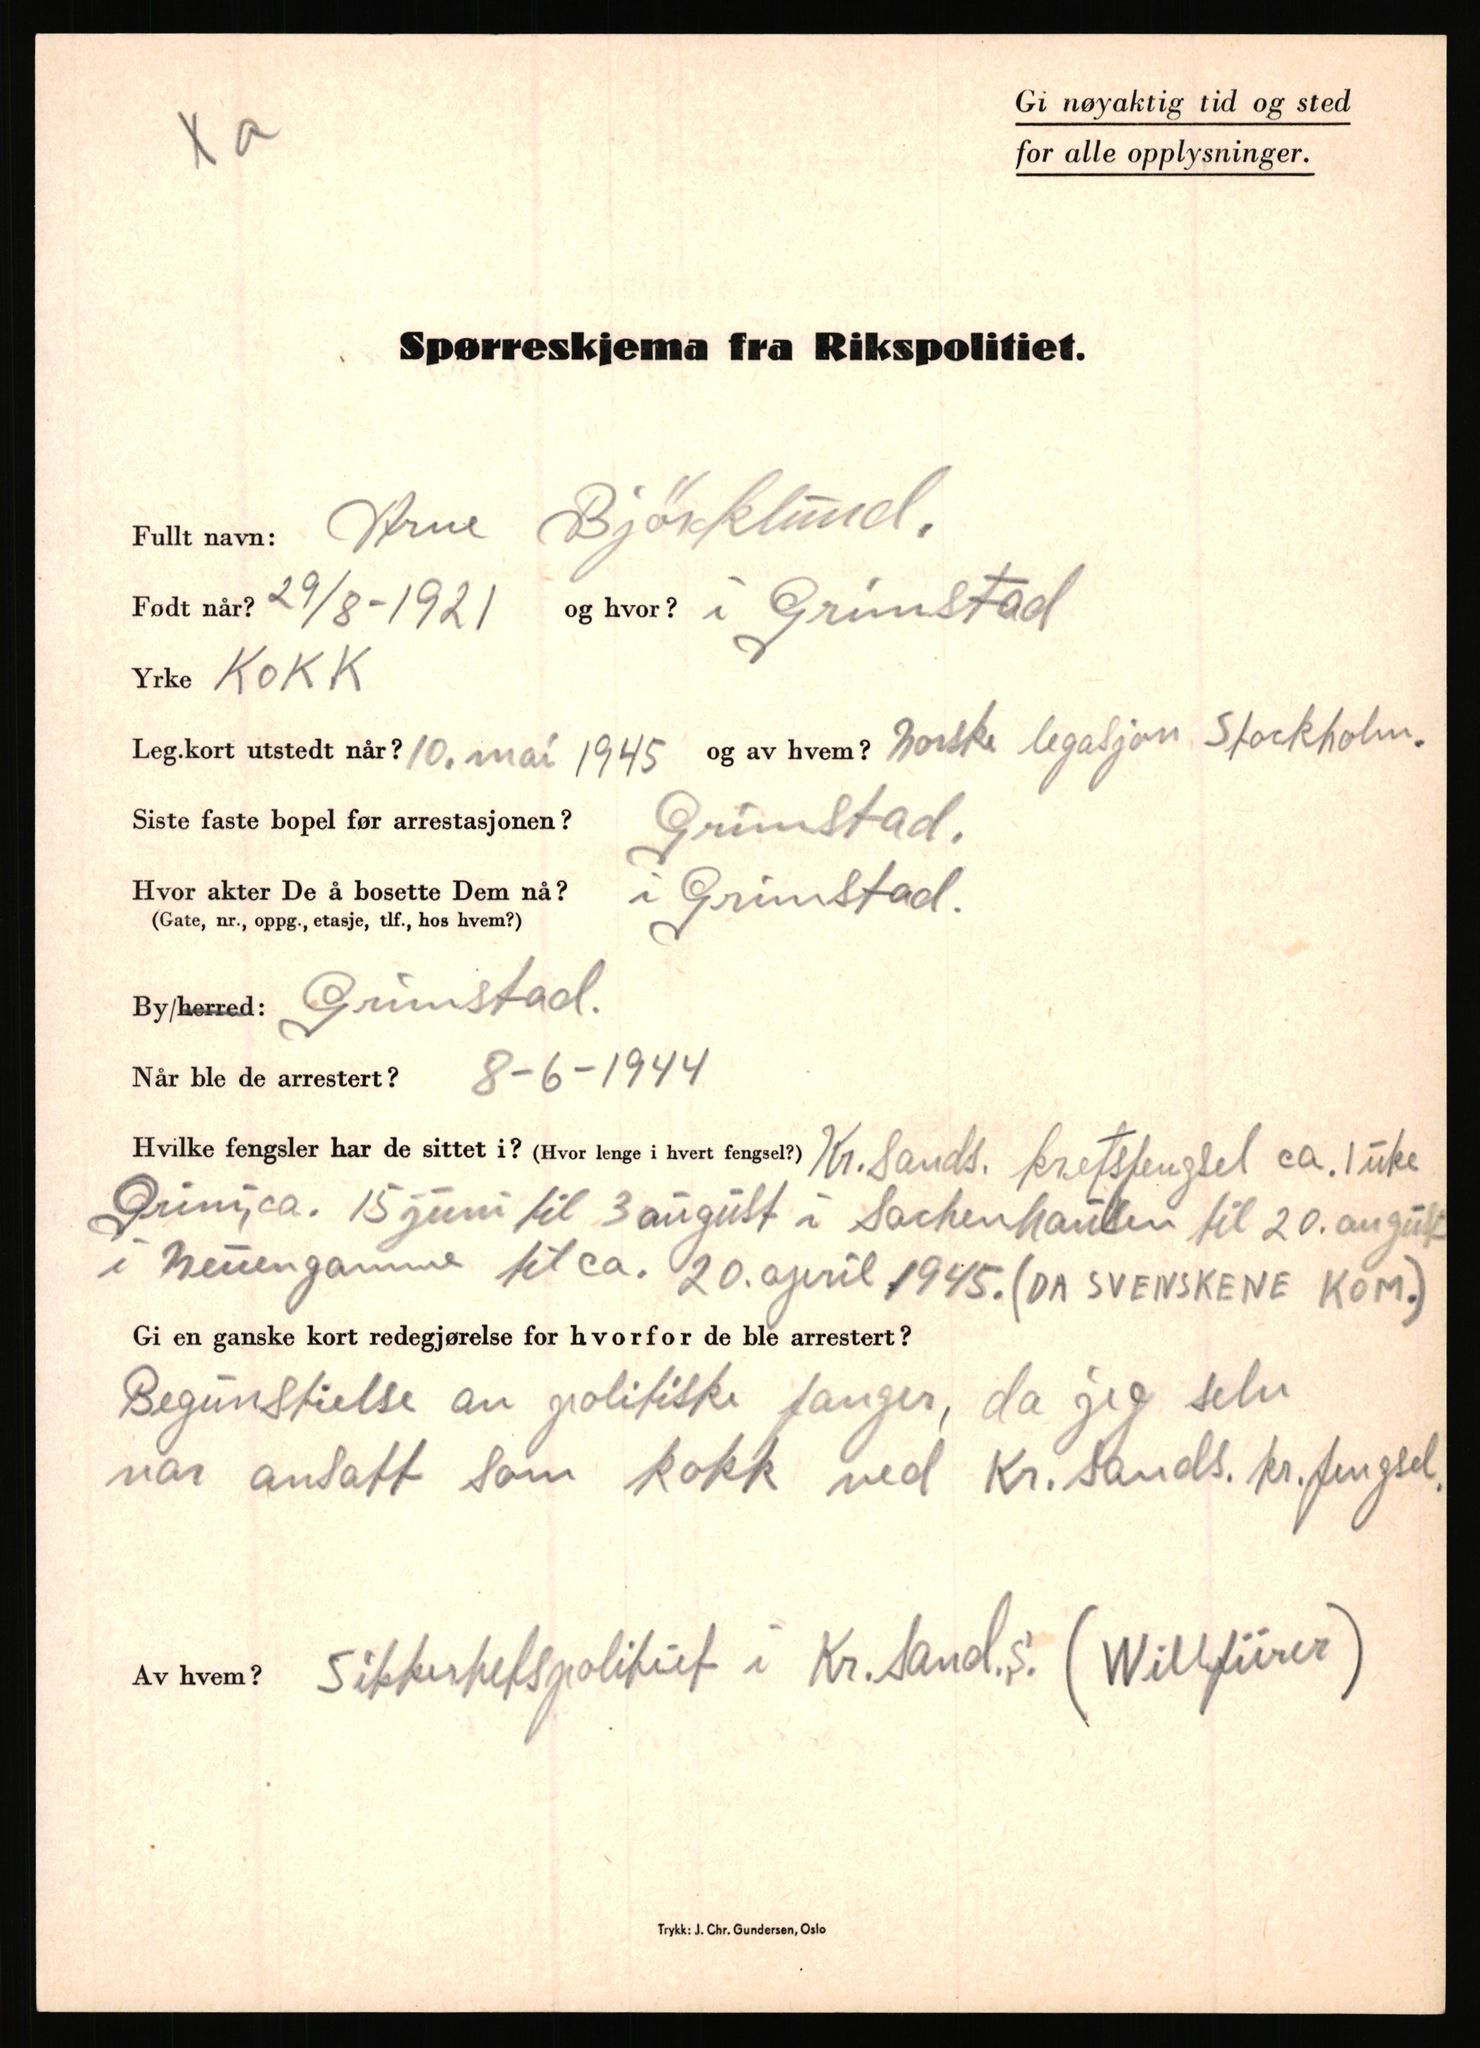 X a
Gi nøyaktig tid og sted
for alle opplysninger.
Spørreskjema fra Rikspolitiet.
Fullt navn: Arne Björklund.
Født når? 29/8-1921 og hvor? i Grimstad
Yrke KOKK
Leg.kort utstedt når? 10. mai 1945 og av hvem? Norske legasjon Stockholm.
Siste faste bopel før arrestasjonen? Grimstad.
Hvor akter De å bosette Dem nå? i Grimstad.
(Gate, nr., oppg., etasje, tlf., hos hvem?)
By/herred: Grimstad.
Når ble de arrestert? 8-6-1944
Hvilke fengsler har de sittet i? (Hvor lenge i hvert fengsel?) Kr.sands. kretsfengsel ca. 1 uke
Grini, ca. 15 juni til 3 august i Sachenhausen til 20. august
i Neuengamme til ca. 20. april 1945. (DA SVENSKENE KOM.)
Gi en ganske kort redegjørelse for hvorfor de ble arrestert?
Begunstielse av politiske fanger, da jeg selv
var ansatt som kokk ved Kr.sands. kr.fengsel.
Av hvem? Sikkerhetspolitiet i Kr.sand.s. (Willfürer)
Trykk: J. Chr. Gundersen, Oslo